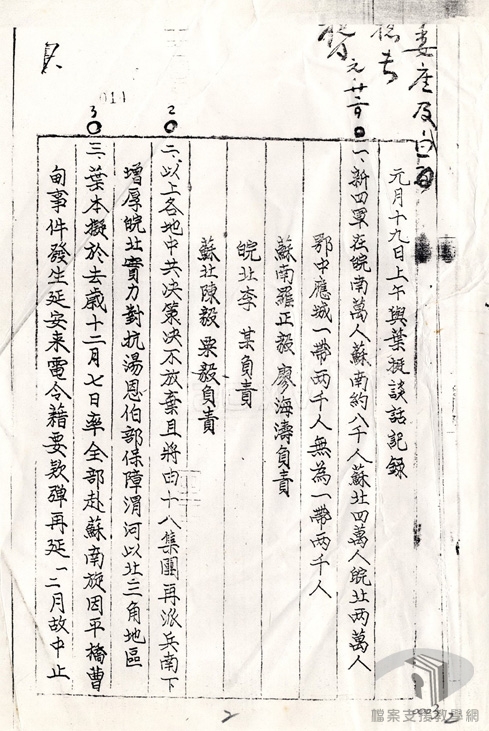 元月十九日上午與葉挺談話記錄
一、新四軍在皖南萬人蘇南約八千人蘇北四萬人皖北两萬人
鄂中應城一帶两千人無為一帶两千人
蘇南羅正毅廖海濤負責
皖北李 某負責
蘇北陳毅粟毅負責
2
二、以上各地中共决策决不放棄且將由十八集團再派兵南下
增厚皖北實力對抗湯恩伯部保障渭河以北三角地區
3
三、葉本擬於去歲十二月七日率全部赴蘇南旋因平橋曹
甸事件發生延安来電令藉要款弹再延一二月故中止
011
2
0003
2
檔案支援教學網